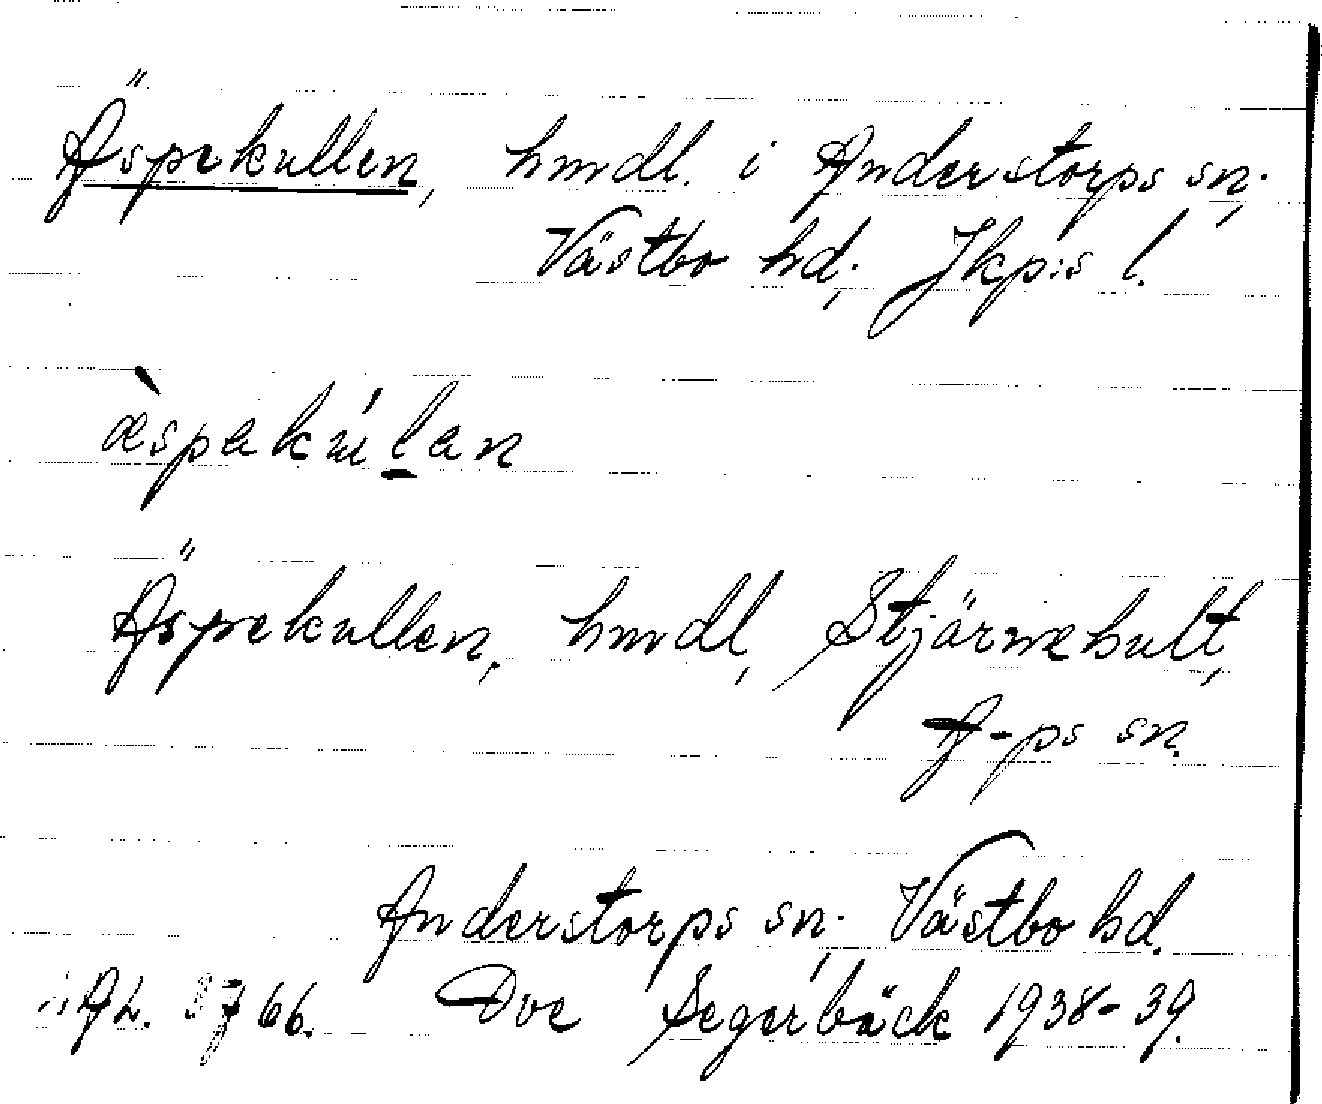 Äspekullen, hmdl. i Anderstorps sn.,
Västbo hd., Jkp:s l.
æ̀spakúl̠an
Äspekullen, hmdl, Stjärnehult,
A-ps sn.
Anderstorps sn., Västbo hd.
3766. Ove Segerbäck 1938-39.